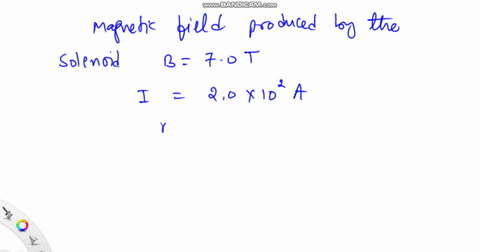 WWW.BANDICAM.COM
Magnetic field produced by the
solenoid B = 7.0 T
I = 2.0 × 10² A